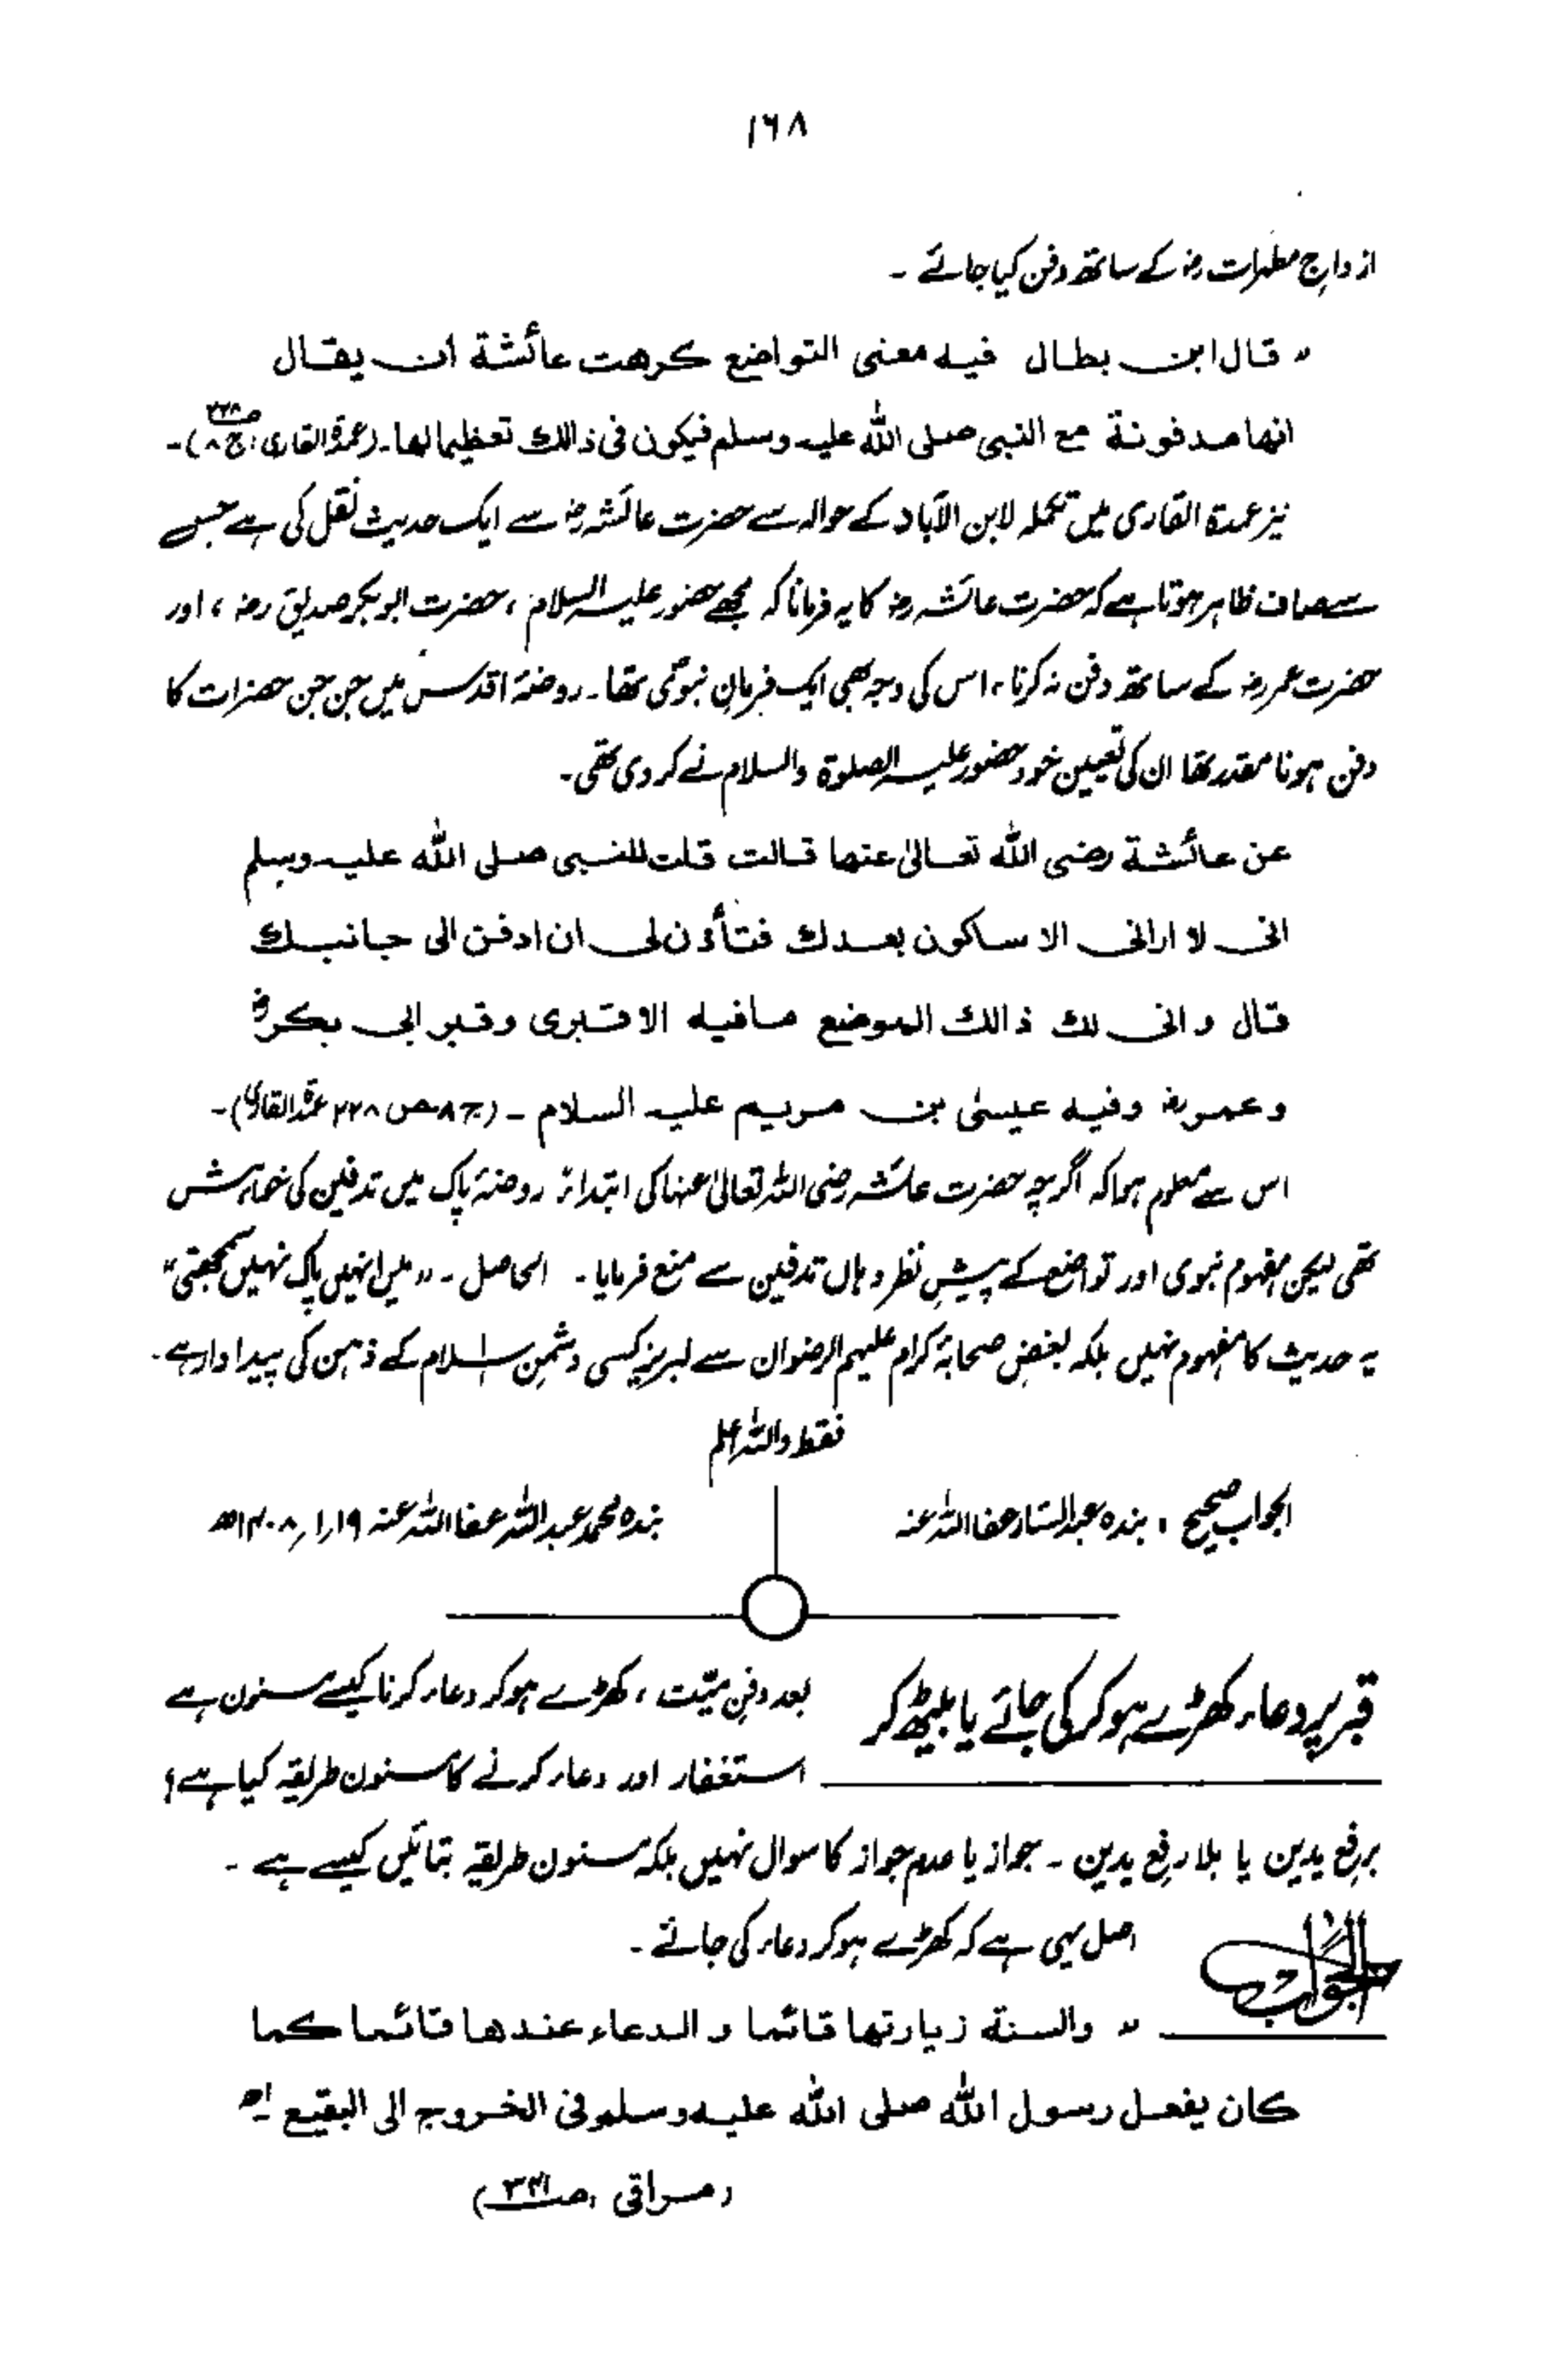 ۱۶۸
ازواجِ مطہرات رضہ کے ساتھ دفن کیا جائے ۔
" قال ابن بطال فیہ معنی التواضع کرھت عائشة ان یقال
انھا مدفونة مع النبی صلی اللہ علیہ وسلم فیکون فی ذالك تعظیما لھا۔ (عمدۃ القاری، ج ۸، ص۲۲۸)۔
نیز عمدۃ القاری میں تکملہ لابن الآباد کے حوالہ سے حضرت عائشہ رضہ سے ایک حدیث نقل کی ہے جس
سے صاف ظاہر ہوتا ہے کہ حضرت عائشہ رضہ کا یہ فرمانا کہ مجھے حضور علیہ السلام ، حضرت ابوبکر صدیق رضہ ، اور
حضرت عمر رضہ کے ساتھ دفن نہ کرنا ، اس کی وجہ بھی ایک فرمانِ نبویؐ تھا ۔ روضۂ اقدس میں جن جن حضرات کا
دفن ہونا مقدر تھا ان کی تعیین خود حضور علیہ الصلوۃ والسلام نے کر دی تھی ۔
عن عائشة رضی اللہ تعالیٰ عنھا قالت قلت للنبی صلی اللہ علیہ وسلم
انی لا ارانی الا ساکون بعدك فتأذن لی ان ادفن الی جانبك
قال و انی لك ذالك الموضع مافیہ الا قبری وقبر ابی بکر رض
و عمر رضہ وفیہ عیسیٰ بن مریم علیہ السلام ۔ (ج ۸ ص ۲۲۸ عمدۃ القاری)۔
اس سے معلوم ہوا کہ اگرچہ حضرت عائشہ رضی اللہ تعالیٰ عنہا کی ابتداءً روضۂ پاک میں تدفین کی خواہش
تھی لیکن مفہوم نبوی اور تواضع کے پیشِ نظر وہاں تدفین سے منع فرمایا ۔ الحاصل ۔ " میں انہیں پاک نہیں سمجھتی "
یہ حدیث کا مفہوم نہیں بلکہ بغضِ صحابۂ کرام علیہم الرضوان سے لبریز کسی دشمنِ اسلام کے ذہن کی پیداوار ہے ۔
فقط واللہ اعلم
الجواب صحیح ، بندہ عبدالستار عفا اللہ عنہ
بندہ محمد عبداللہ عفا اللہ عنہ ۱۹/۱/۱۴۰۸ھ
قبر پر دعاء کھڑے ہو کر کی جائے یا بیٹھ کر
بعد دفنِ میّت ، کھڑے ہو کر دعاء کرنا کیسے مسنون ہے
استغفار اور دعاء کرنے کا مسنون طریقہ کیا ہے ؟
برفعِ یدین یا بلا رفعِ یدین ۔ جواز یا عدم جواز کا سوال نہیں بلکہ مسنون طریقہ بتائیں کیسے ہے ۔
الجواب
اصل یہی ہے کہ کھڑے ہو کر دعاء کی جائے ۔
" والسنة زیارتھا قائما و الدعاء عندھا قائما کما
کان یفعل رسول اللہ صلی اللہ علیہ وسلم فی الخروج الی البقیع اھ
(مراقی ، ص۳۴۱)